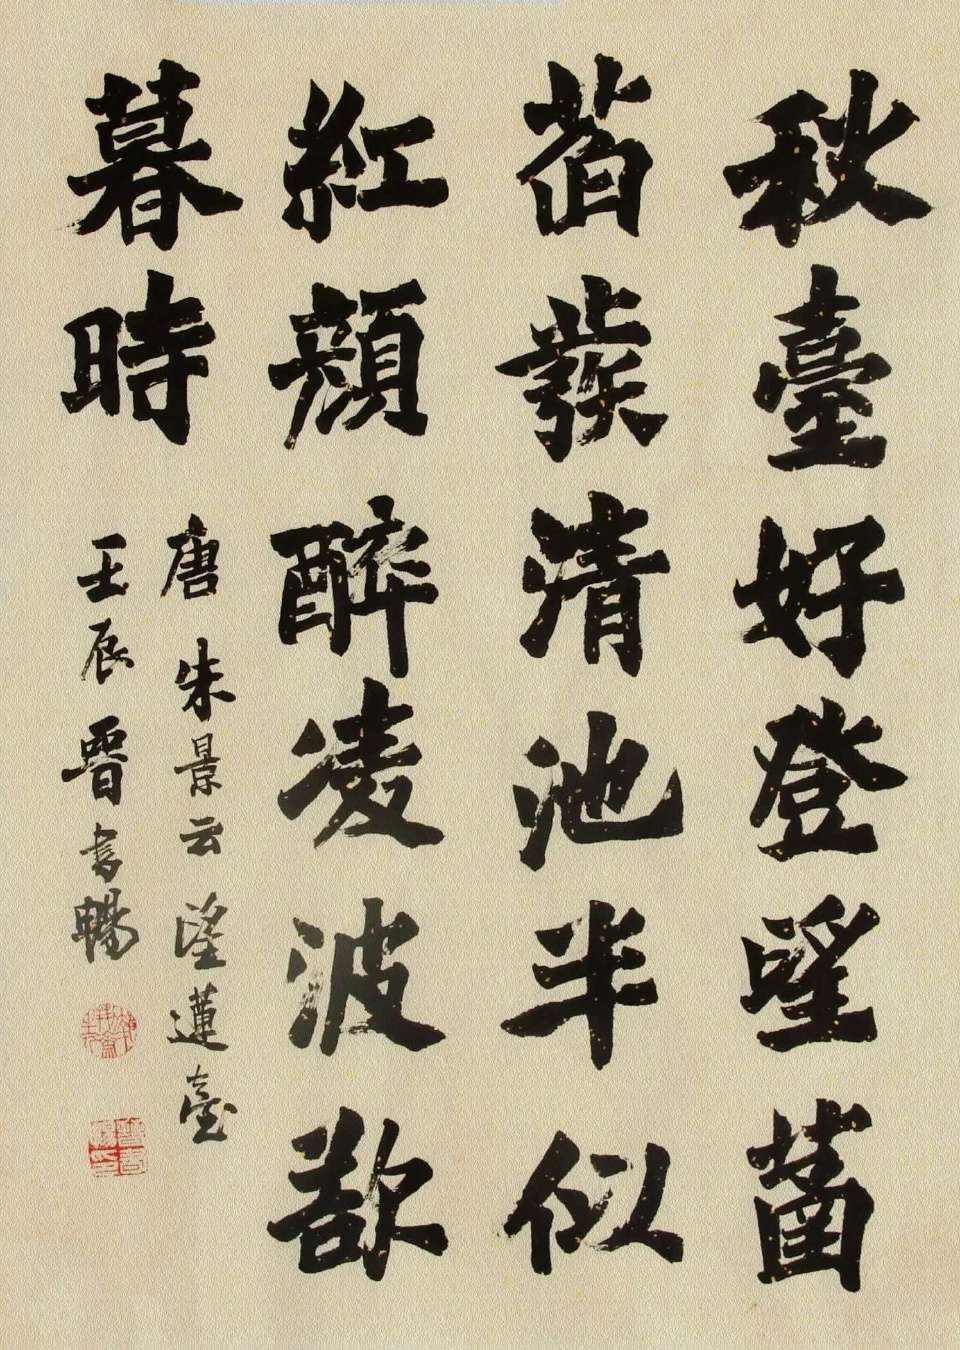 秋臺好登望菡
萏發清池半似
紅顏醉凌波欲
暮時
唐朱景云望蓮臺
壬辰晉書暢